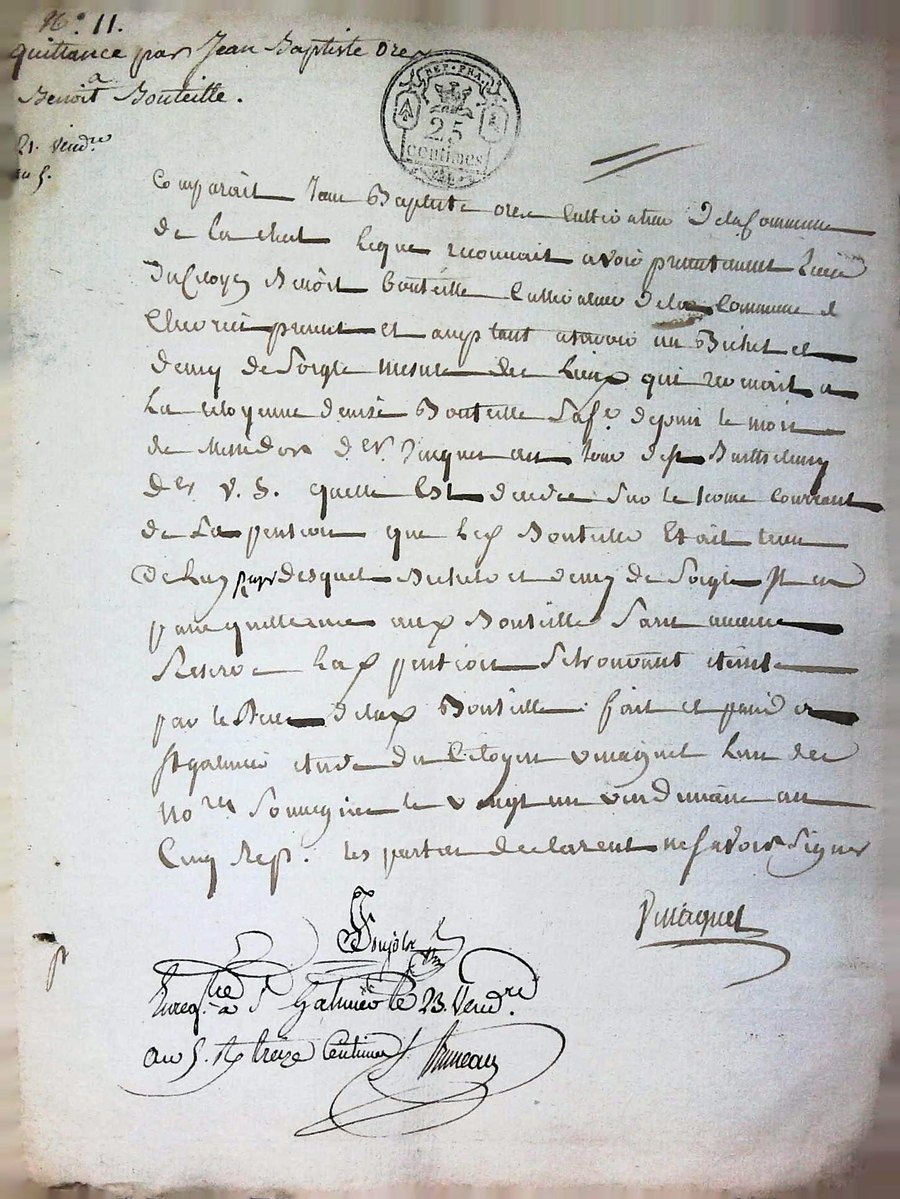 N.° 11.
quittance par Jean Baptiste Ore
a
Benoit Bouteille.
21. Vend.re
an 5.
REP. FRA.
25
centimes
Comparait Jean Baptiste ore Cultivateur De la Commune
de La chal Leque reconnait avoir presentement Recu
Du Citoyen Benoit bouteille Cultivateur de la Commune d
Chevrier present et acceptant a scavoir un Bichet et
demy de Soigle mesure des Lieux qui revenait a
La citoyenne denise Bouteille Sa fe. depuis le mois
de Messidor der. Jusques au Jour de st Barthelemy
der v. S. quelle Est decedee Sur le terme Courrant
de La pension que Led Bouteille Etait tenu
de Luy payer desquel Bichets et demy de Soigle Il en
passe quittance aud Bouteille Sans aucune
Reserve La d pension Se trouvant eteinte
par le deces de lad Bouteille fait et passe a
St galmier etude du Citoyen vinagnet L'un des
No.res Soussignes le vingt un vendemiaire an
Cinq Rep. les parties declarent ne savoir Signer
Vinagnet
Enreg.tré a St Galmier le 23. Vend.re
an 5. R treize Centimes Bruneau